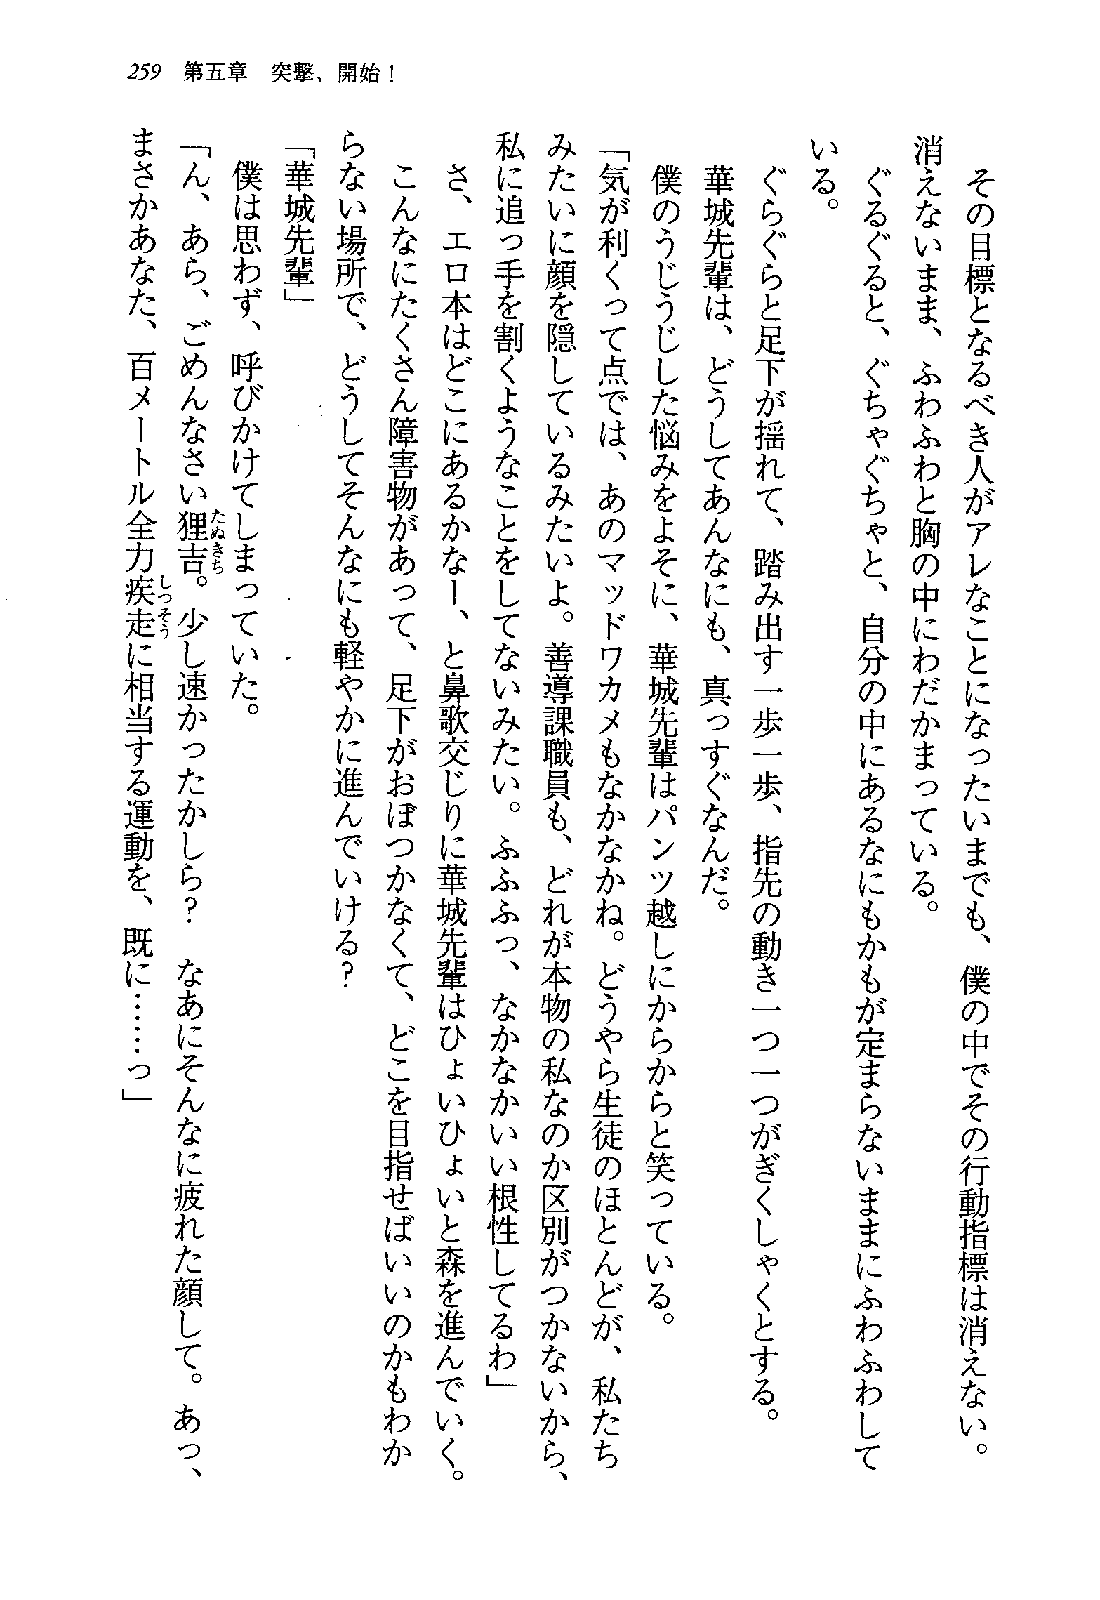 259　第五章　突撃、開始！
　その目標となるべき人がアレなことになったいまでも、僕の中でその行動指標は消えない。
消えないまま、ふわふわと胸の中にわだかまっている。
　ぐるぐると、ぐちゃぐちゃと、自分の中にあるなにもかもが定まらないままにふわふわして
いる。
　ぐらぐらと足下が揺れて、踏み出す一歩一歩、指先の動き一つ一つがぎくしゃくとする。
　華城先輩は、どうしてあんなにも、真っすぐなんだ。
　僕のうじうじした悩みをよそに、華城先輩はパンツ越しにからからと笑っている。
「気が利くって点では、あのマッドワカメもなかなかね。どうやら生徒のほとんどが、私たち
みたいに顔を隠しているみたいよ。善導課職員も、どれが本物の私なのか区別がつかないから、
私に追っ手を割くようなことをしてないみたい。ふふふっ、なかなかいい根性してるわ」
　さ、エロ本はどこにあるかなー、と鼻歌交じりに華城先輩はひょいひょいと森を進んでいく。
　こんなにたくさん障害物があって、足下がおぼつかなくて、どこを目指せばいいのかもわか
らない場所で、どうしてそんなにも軽やかに進んでいける？
「華城先輩」
　僕は思わず、呼びかけてしまっていた。
「ん、あら、ごめんなさい狸吉。少し速かったかしら？　なあにそんなに疲れた顔して。あっ、
まさかあなた、百メートル全力疾走に相当する運動を、既に……っ」
たぬきち
しっそう